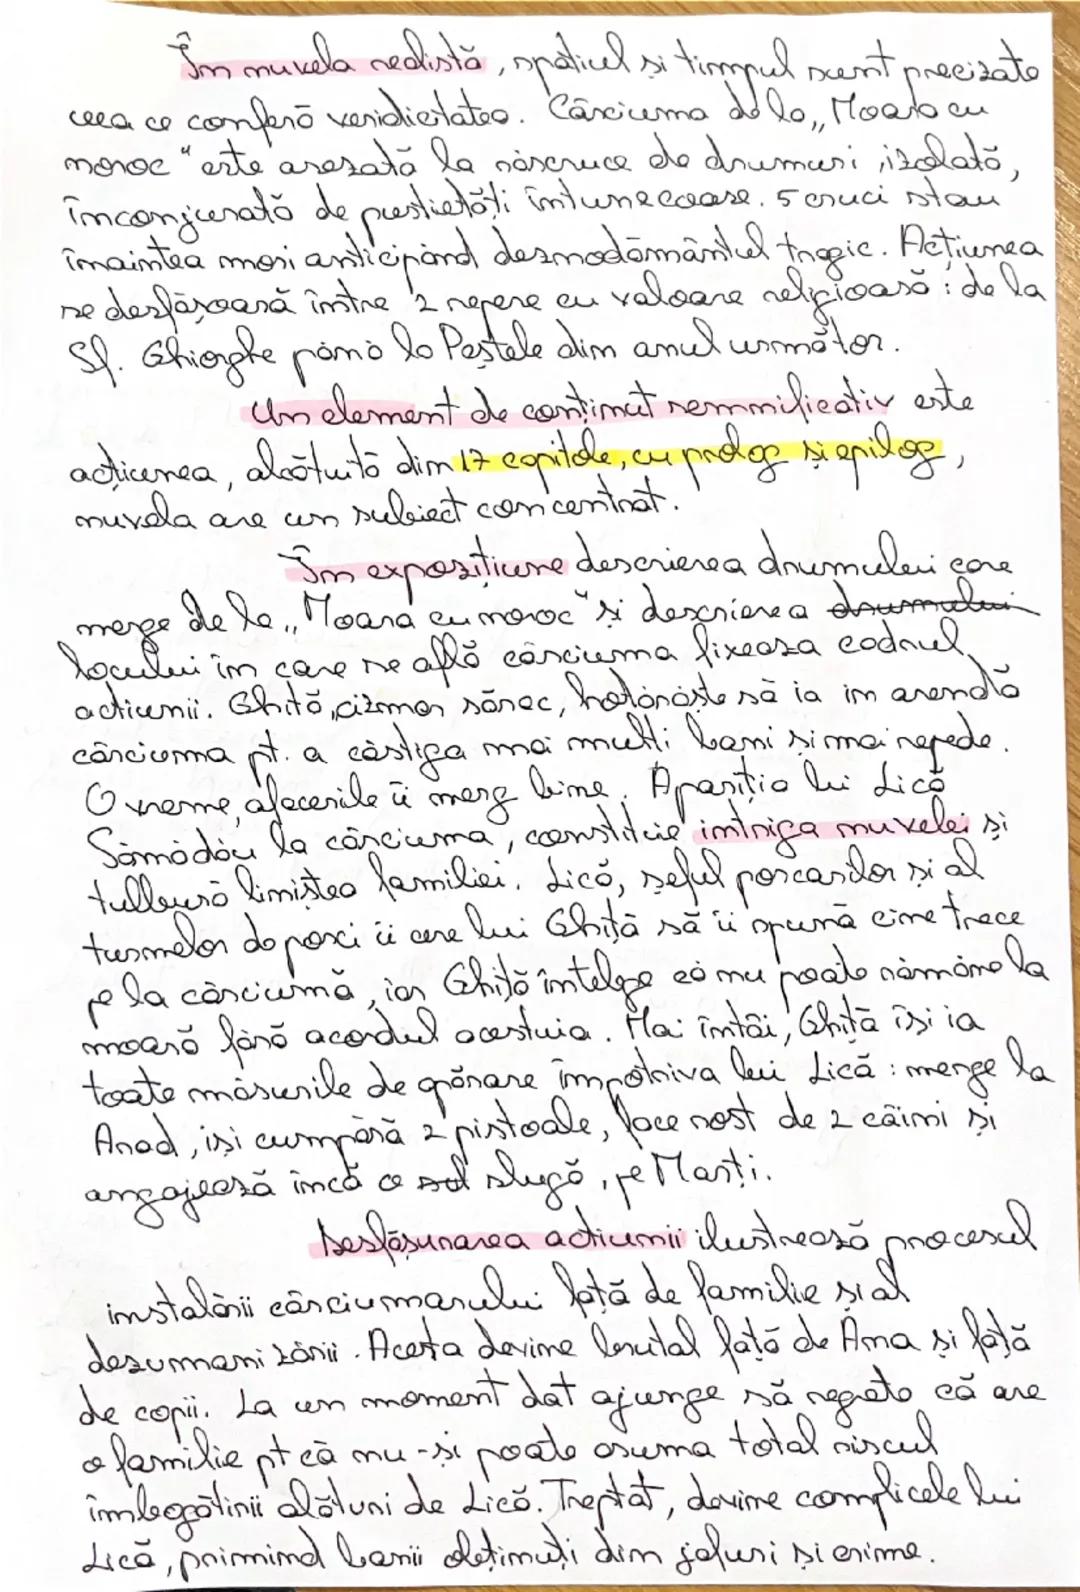 În nuvela realistă, spațiul și timpul sunt precizate
ceea ce conferă veridicitatea. Cârciuma de la „Moara cu
noroc" este așezată la răscruce de drumuri, izolată,
înconjurată de pustietăți întunecoase. 5 cruci stau
înaintea morii anticipând deznodământul tragic. Acțiunea
se desfășoară între 2 repere cu valoare religioasă: de la
Sf. Ghiorghe până la Paștele din anul următor.
Un element de conținut semnificativ este
acțiunea, alcătuită din 17 capitole, cu prolog și epilog,
nuvela are un subiect concentrat.
În expozițiune descrierea drumului care
merge de la „Moara cu noroc" și descrierea drumului
locului în care se află cârciuma fixeaza cadrul
acțiunii. Ghiță, cizmar sărac, hotărăște să ia în arendă
cârciuma pt. a câștiga mai mulți bani și mai repede.
O vreme, afacerile îi merg bine. Apariția lui Lică
Sămădău la cârciuma, constituie intriga nuvelei și
tulbură liniștea familiei. Lică, șeful porcarilor și al
turmelor de porci îi cere lui Ghiță să îi spună cine trece
pe la cârciumă, iar Ghiță întelege că nu poate rămâne la
moară fără acordul acestuia. Mai întâi, Ghiță își ia
toate măsurile de apărare împotriva lui Lică: merge la
Arad, își cumpără 2 pistoale, face rost de 2 câini și
angajează încă o slugă, pe Marți.
Desfășurarea acțiunii ilustrează procesul
instalării cârciumarului față de familie și al
dezumanizării. Acesta devine brutal față de Ana și față
de copii. La un moment dat ajunge să regrete că are
o familie pt că nu-și poate asuma total riscul
îmbogățirii alături de Lică. Treptat, devine complicele lui
Lică, primind banii obținuți din jafuri și crime.